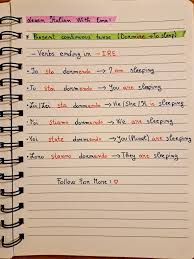 Learn Italian With Ema!
* Present continuous tense (Dormire → To sleep)
- Verbs ending in - IRE
• Io sto dormendo → I am sleeping
• Tu stai dormendo → You are sleeping
• Lui/Lei sta dormendo → He/She/It is sleeping
• Noi stiamo dormendo → We are sleeping
• Voi state dormendo → You (Plural) are sleeping
• Loro stanno dormendo → They are sleeping
Follow For More!